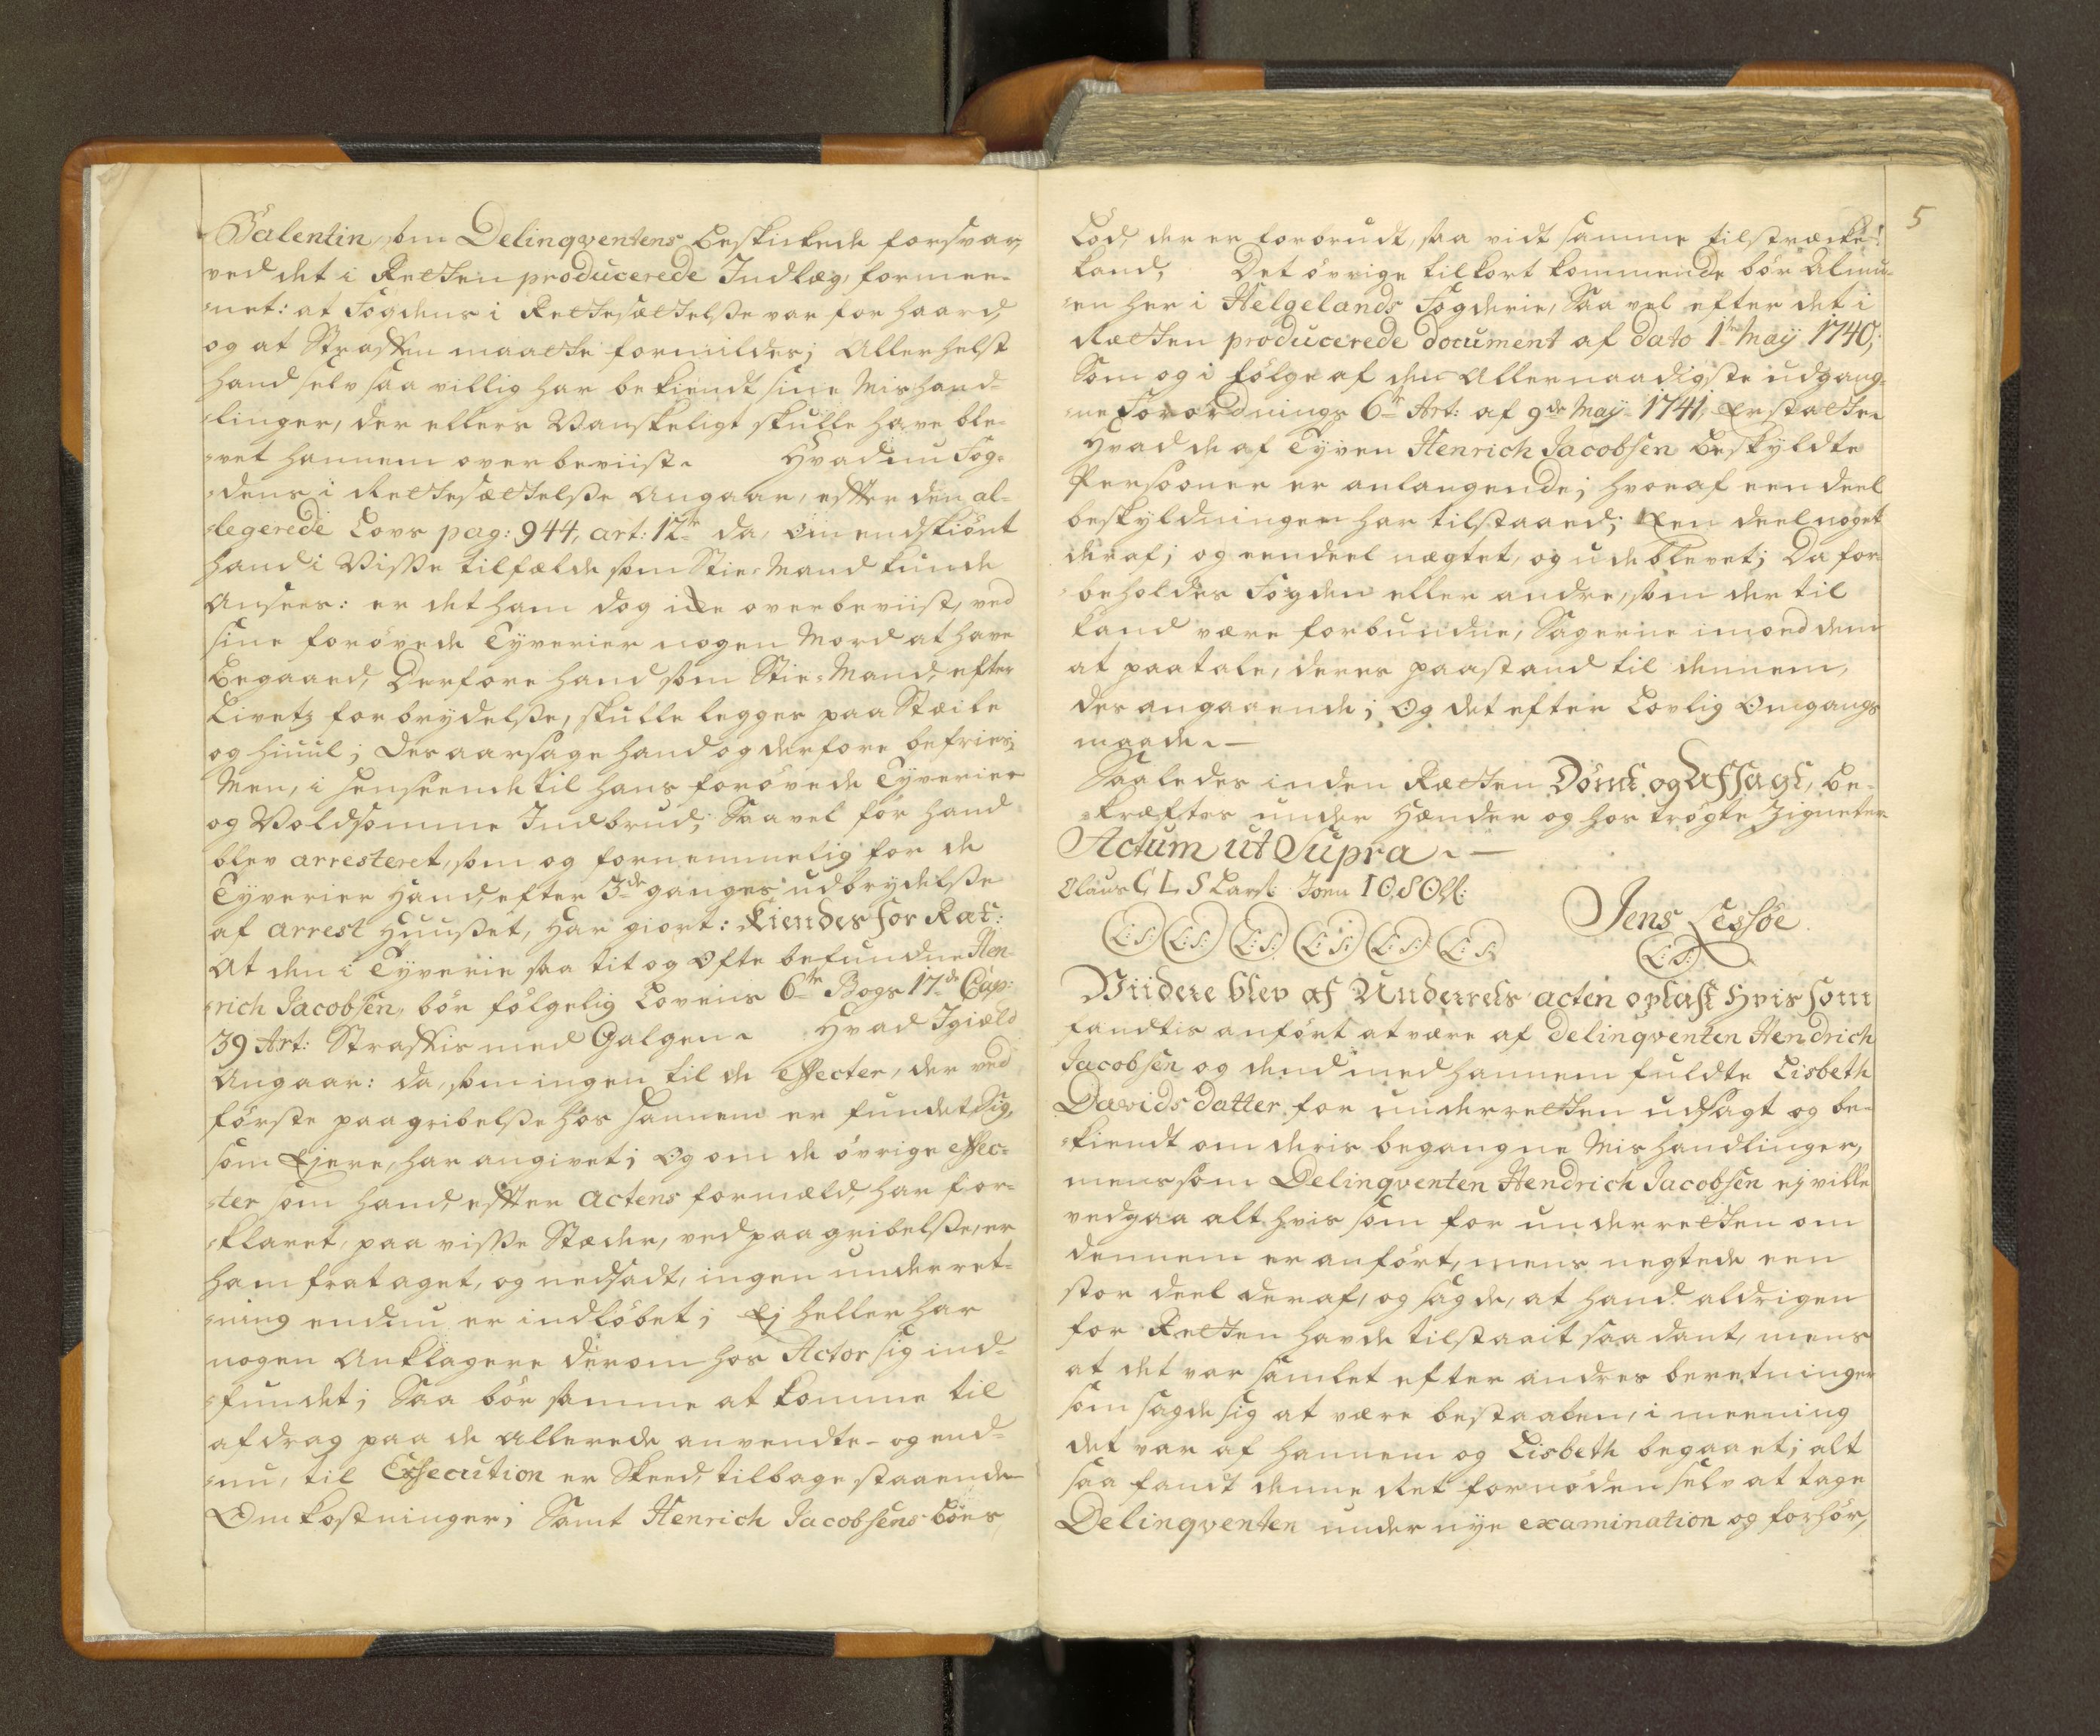 Valentin, som Delinqventens beskickede forsvar,
ved det i Retten producerede Indlæg, formee-
-net: at Fogdens i Rettesættelsse var for haard,
og at Straffen maatte formildes; Allerhelst
hand selv saa villig har bekiendt sine Mishand-
-linger, der ellers Vanskeligt skulle have ble-
-vet hannem overbeviist. Hvad nu Fog-
-dens i Rettesættelsse Angaar, effter den al-
-legerede Lovs pag: 944, art: 12te da, omendskiönt
hand i Visse tilfælde som Stie-Mand kunde
Ansees: er det ham dog icke overbeviist, ved
sine forövede Tyverier nogen Mord at have
Begaaed, Derfore hand som Stie-Mand, efter
Livetz forbrydelsse, skulle legges paa Steile
og hiuul; Des aarsage hand og derfore befries;
Men, i henseende til hans forövede Tyverier
og Voldsomme Indbrud; Saavel för hand
blev arresteret, som og fornemmelig for de
Tyverier Hand, efter 3de ganges udbrydelsse
af arrest Huusset, har giort: Kiendes for Ræt:
At den i Tyverie saa tit og Ofte befundne Hen-
-rich Jacobsen, bör fölgelig Lovens 6te Bogs 17de Cap:
39 Art: Straffis med Galgen. Hvad Igiæld
Angaar: da, som ingen til de effecter, der ved
förste paagribelsse hos hannem er fundet Sig,
som Ejere, har angivet; Og om de övrige effec-
-ter som hand, effter actens formæld, har for-
-klaret, paa visse Stæder, ved paagribelsse, er
ham frataget, og nedsadt, ingen underret-
-ning endnu er indlöbet; Ej heller har
nogen Anklagere derom hos Actor sig ind-
-fundet; Saa bör samme at komme til
afdrag paa de Allerede anvendte- og end-
-nu, til Exsecution er Skeed, tilbage staaende
Omkostninger; Samt Henrich Jacobsens Boes
5
Lod, der er forbrudt, saa vidt samme tilstræcke
kand, Det övrige tilkort kommende bör Almu-
-en her i Helgelands Fogderie, Saa vel efter det i
Rætten producerede document af dato 1te May 1740;
Som og i fölge af den Allernaadigste udgang-
-ne Forordnings 6te Art: af 9de May 1741, Erstatte.
Hvad de af Tyven Henrich Jacobsen Beskyldte
Persooner er anlangende; hvoraf een deel
beskyldningen har tilstaaed; Een deel noget
deraf; og een deel nægtet, og udeblevet; Da for
beholdes Fogden eller andre, som der til
kand være forbundne, Sagerne imod dem
at paatale, deres paastand til dennem,
des angaaende; Og det efter Lovlig Omgangs
maade. -
Saaledes inden Rætten Dömt og Afsagt, be-
-kræftes under Hænder og hos trögte Zigneter
Actum ut Supra. -
Olaus C L S Larst: Joen I O S Olss:
L:S: L:S: L:S: L:S: L:S: L:S: Jens Lessöe.
L:S:
Viidere blev af Underrets acten oplæst hvis som
fandtis anfört at være af Delinqventen Hendrich
Jacobsen og dend med hannem fuldte Lisbeth
Davids datter for underretten udsagt og be-
-kiendt om deris begangne Mishandlinger,
mens som Delinqventen Hendrich Jacobsen ej ville
vedgaa alt hvis som for underretten om
dennem er anfört, mens negtede een
stor deel deraf, og sagde, at hand aldrigen
for Retten havde tilstaait saadant, mens
at det var samlet efter andres beretninger
som sagde sig at være bestaalen, i meening
det var af hannem og Lisbeth begaaet; alt
saa fandt denne Ret fornöden selv at tage
Delinqventen under nye examination og forhör,